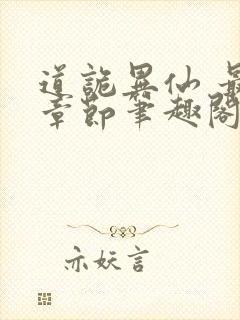 道詭異仙 最
章節筆趣閣
亦妖言